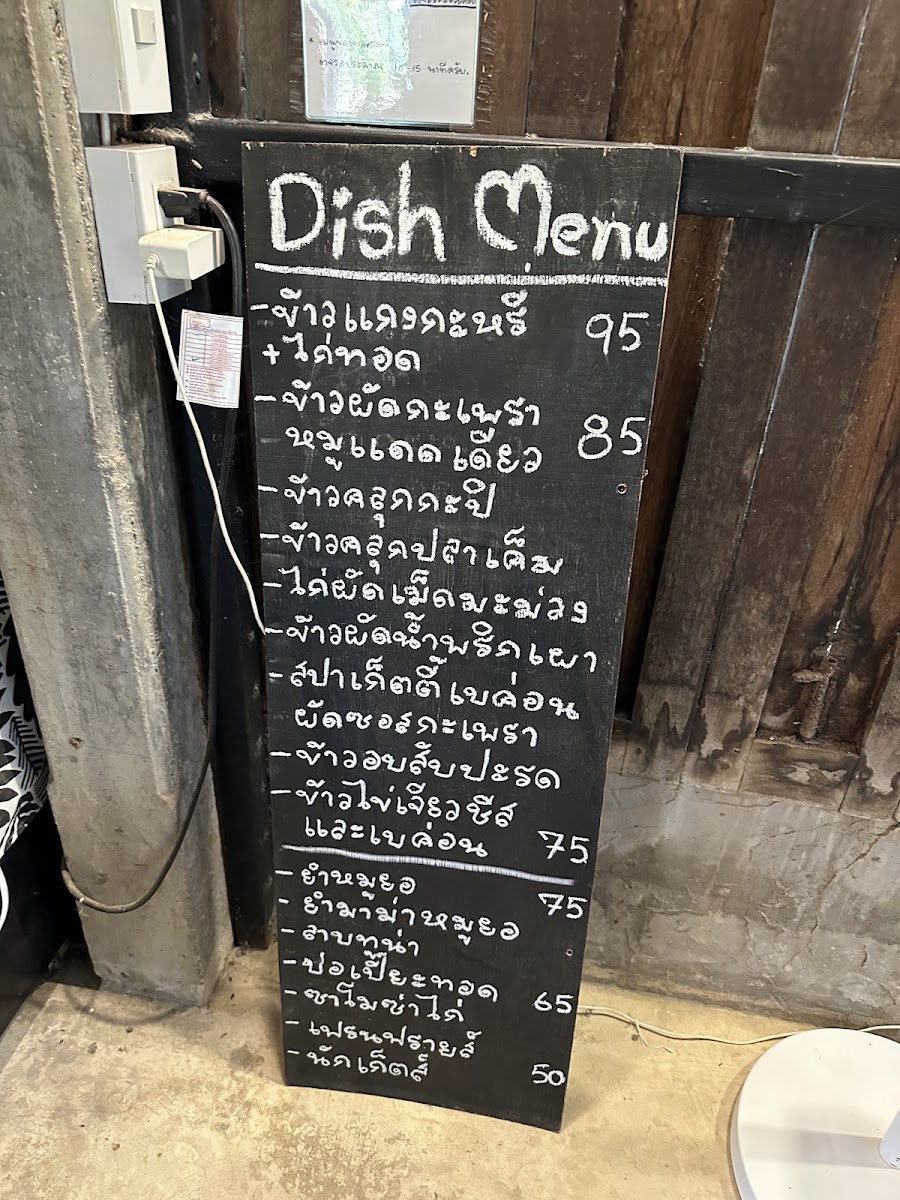 10-15 นาทีครับ.
Dish Menu
- ข้าวแกงกะหรี่ 95
+ ไก่ทอด
- ข้าวผัดกะเพรา
หมูแดดเดียว 85
- ข้าวคลุกกะปิ
- ข้าวคลุกปลาเค็ม
- ไก่ผัดเม็ดมะม่วง
- ข้าวผัดน้ำพริกเผา
- สปาเก็ตตี้เบค่อน
ผัดซอสกะเพรา
- ข้าวอบสับปะรด
- ข้าวไข่เจียวชีส
และเบค่อน 75
- ยำหมูยอ 75
- ยำมาม่าหมูยอ
- ลาบทูน่า
- ปอเปี๊ยะทอด 65
- ซาโมซ่าไก่
- เฟรนฟรายส์
- นักเก็ตส์ 50